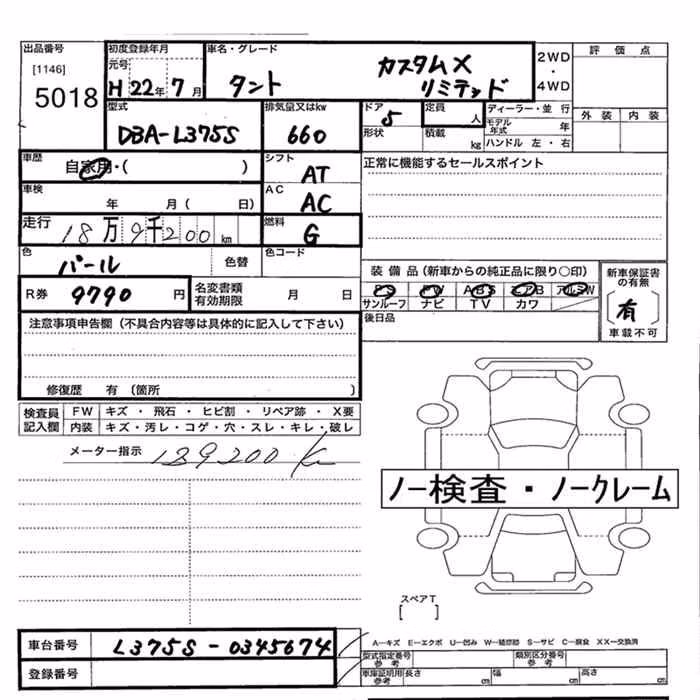 出品番号 初度登録年月 車名・グレード 2WD・4WD 評価点
[1146] 元号 カスタムX
5018 H22年7月 タント リミテッド
型式 排気量又はkw ドア 定員 ディーラー・並行 外装 内装
DBA-L375S 660 5 人 モデル年式 年
形状 積載 kg ハンドル 左・右
車歴 自家用・( ) シフト AT 正常に機能するセールスポイント
車検 年 月( 日) AC AC
走行 18万9千200km 燃料 G
色 パール 色替 色コード 装備品(新車からの純正品に限り○印) 新車保証書の有無
R券 9790円 名変書類有効期限 月 日 PS PW ABS エアB アルミW
サンルーフ ナビ TV カワ 〔有〕
注意事項申告欄(不具合内容等は具体的に記入して下さい) 後日品 車載不可
修復歴 有(箇所 )
検査員記入欄 FW キズ・飛石・ヒビ割・リペア跡・X要
内装 キズ・汚レ・コゲ・穴・スレ・キレ・破レ
メーター指示 189200k
ノー検査・ノークレーム
スペアT
[ ]
車台番号 L375S-0345674 A―キズ E―エクボ U―凹み W―補修跡 S―サビ C―腐食 XX―交換済
型式指定番号 参考 類別区分番号 参考
登録番号 車庫証明用 参考 長さ cm 幅 cm 高さ cm